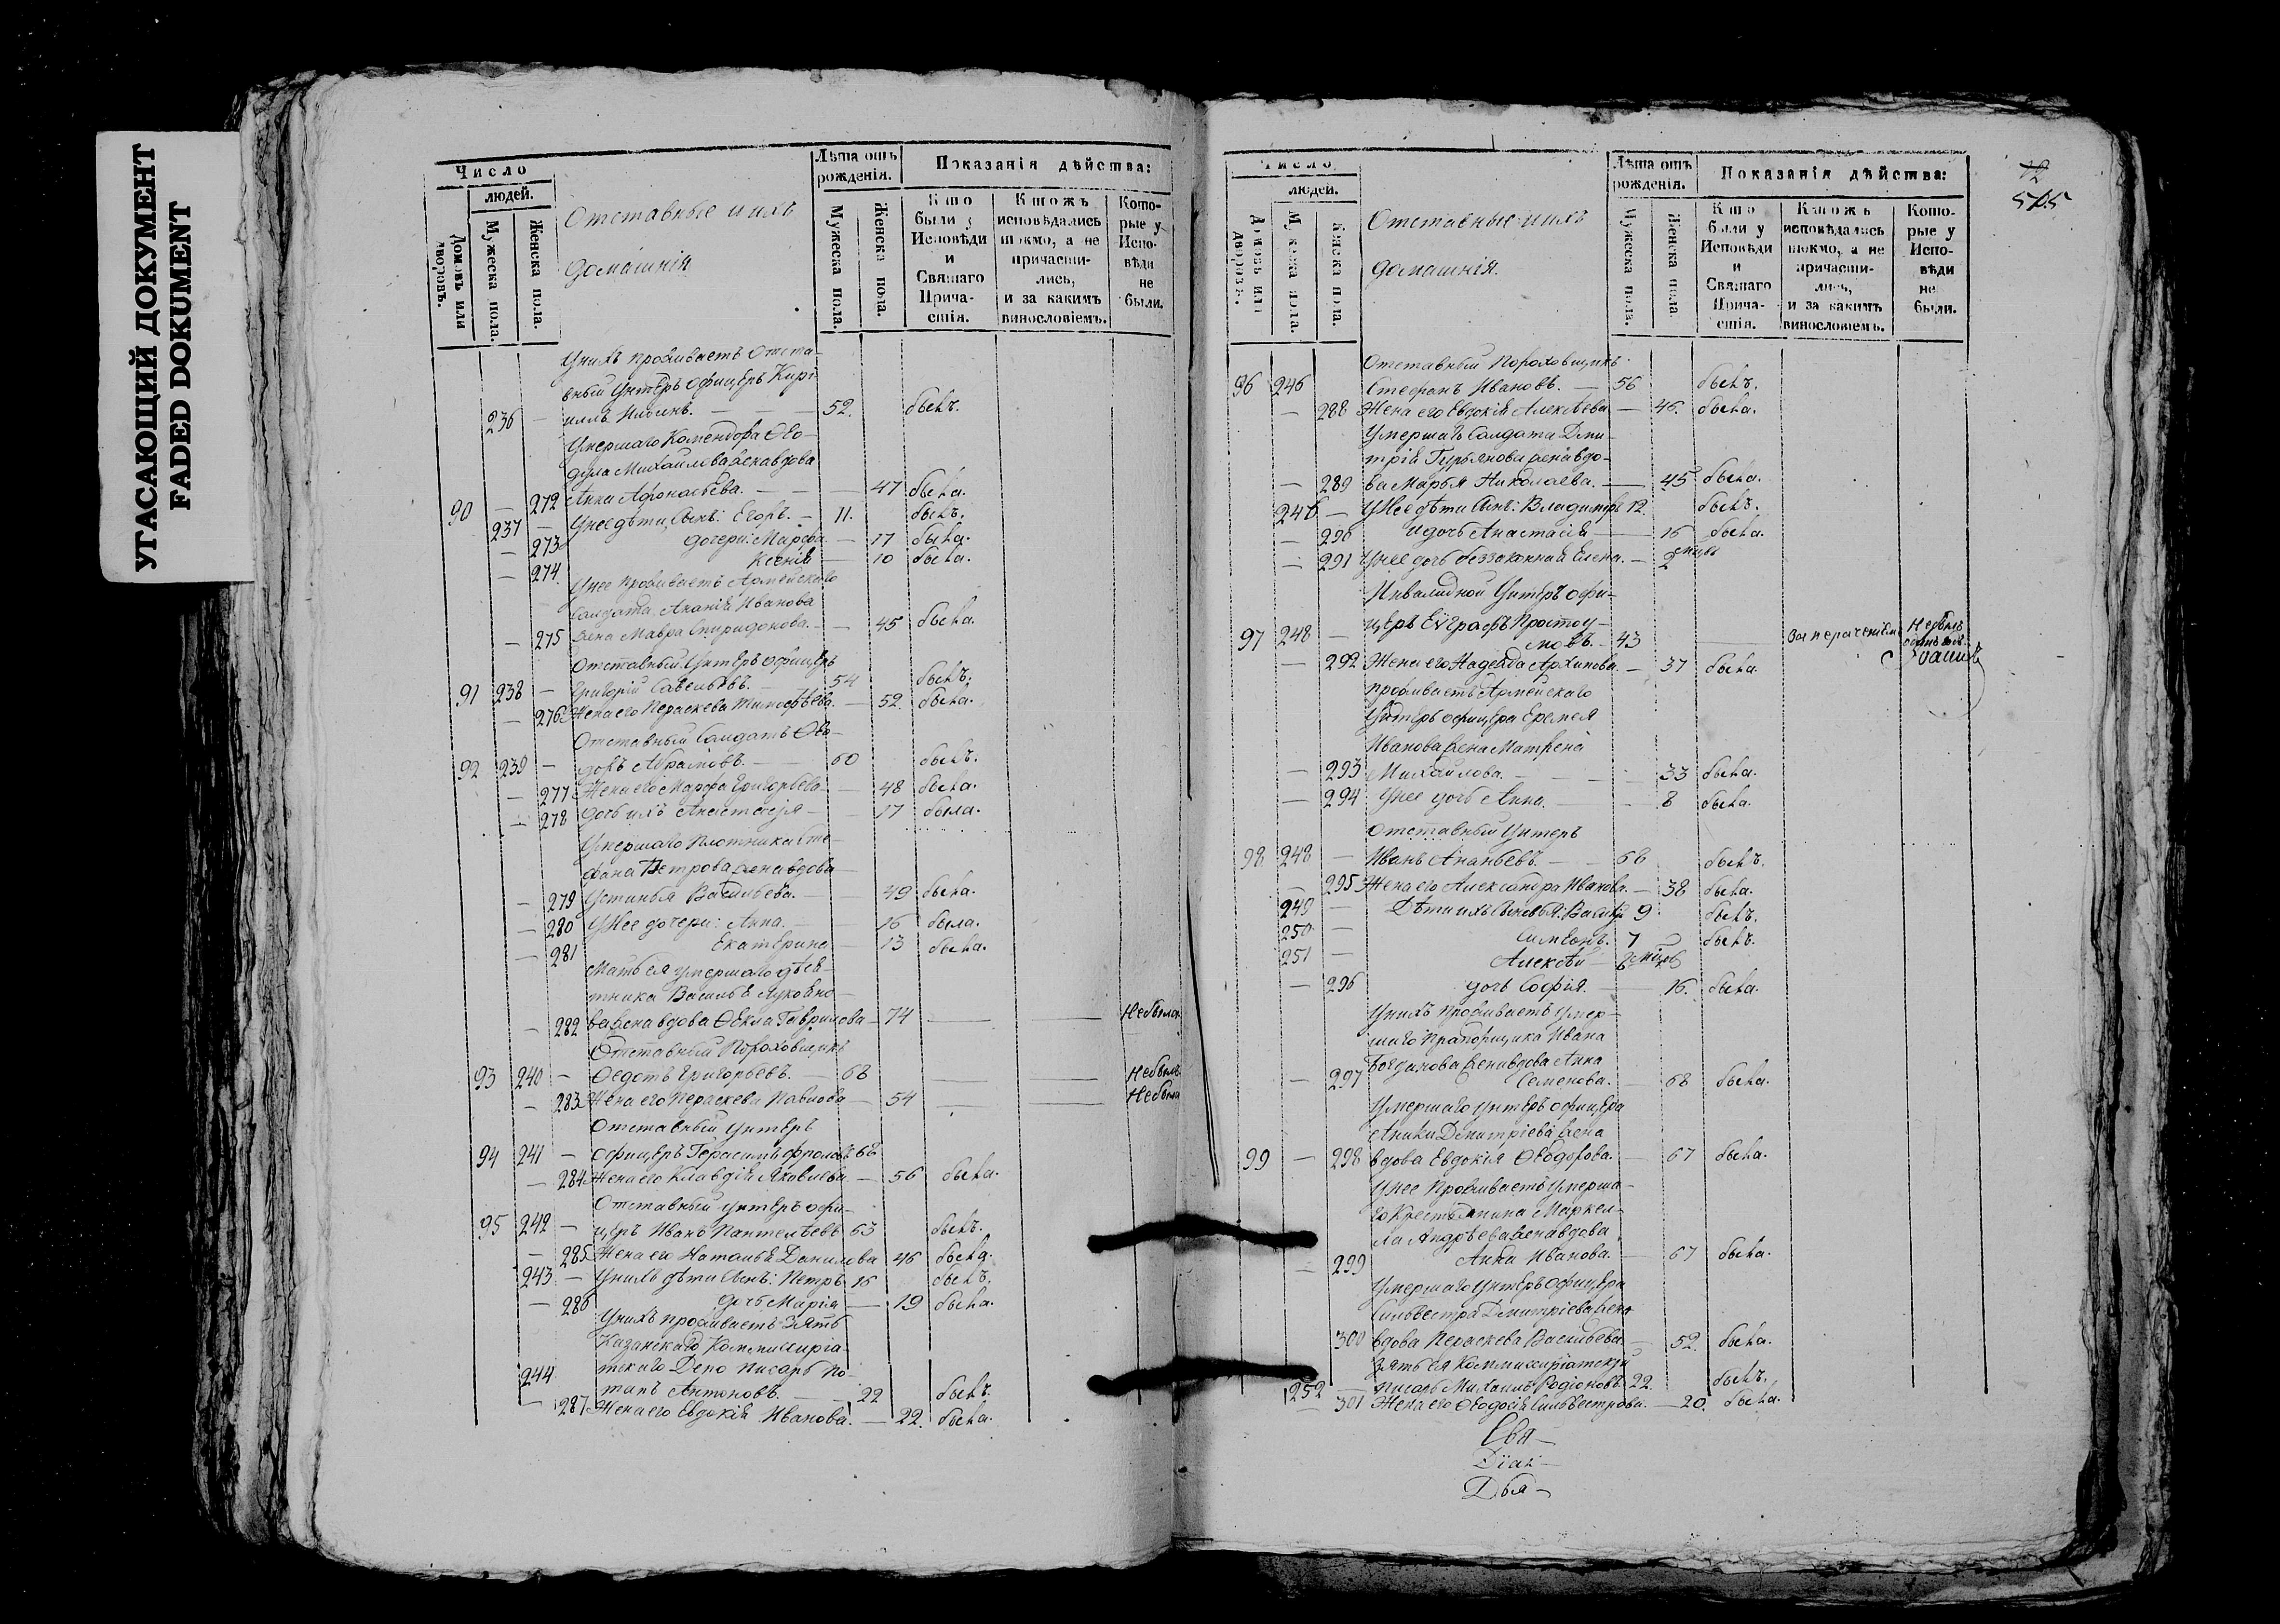 УТАСАЮЩИЙ ДОКУМЕНТ
FADED DOKUMENT
Число
людей.
Домовъ или дворовъ.
Мужеска пола.
Женска пола.
Отставные и ихъ
домашнія
Лѣта отъ рожденія.
Мужеска пола.
Женска пола.
Показанія дѣйства:
Кто были у Исповѣди и Святаго Причастія.
Ктожъ исповѣдались токмо, а не причастились, и за какимъ винословіемъ.
Которые у Исповѣди не были.
У нихъ проживаетъ Отста-
вный Унтеръ офицеръ Кири-
236 — 52. былъ.
Умершаго Комендора Ѳео-
дула Михайлова жена вдова
90 — 272 Анна Афонасьева. — 47 была.
237 — У нее дѣти, сынъ: Егоръ. — 11. былъ.
— 273 дочери: Марфа — 17 была.
— 274 Ксенія — 10 была.
У нее проживаетъ Армейскаго
Солдата Ананія Иванова
— 275 жена Мавра Спиридонова. — 45 была.
Отставный Унтеръ офицеръ
91 238 — Григорій Савельевъ. 54 былъ.
— 276 Жена его Параскева Тимофѣева. — 52. была.
Отставный Солдатъ Ѳео-
92 239 — доръ Абрамовъ. — 60 былъ.
— 277 Жена его Марфа Григорьева — 48 была.
— 278 Дочь ихъ Анастасія — 17 была.
Умершаго Плотника Сте-
фана Петрова жена вдова
— 279 Устинья Васильева. — 49 была.
— 280 У нее дочери: Анна. — 16 была.
— 281 Екатерина — 13 была.
Мать ея умершаго
282 ва жена вдова Ѳекла Гаврилова — 74 — — Небыла
Отставный Пороховщикъ
93 240 — Ѳедотъ Григорьевъ. — 68 — — Небылъ
— 283 Жена его Параскева Павлова — 54 — — Небыла
Отставный Унтеръ
94 241 — офицеръ Герасимъ Фроловъ 66
— 284 Жена его Клавдія Яковлева — 56 была.
Отставный унтеръ офи-
95 242 — церъ Иванъ Пантелѣевъ 63 былъ.
— 285 Жена его Наталья Данилова 46 была.
243 — У нихъ дѣти сынъ: Петръ 16 былъ.
— 286 дочь Марія — 19 была.
У нихъ проживаетъ зять
Казанскаго Коммисаріа-
244 тскаго Депо писарь По-
тапъ Антоновъ. — 22 былъ.
— 287 Жена его Евдокія Иванова. — 22. была.
505
Число
людей.
Домовъ или дворовъ.
Мужеска пола.
Женска пола.
Отставные и ихъ
домашнія.
Лѣта отъ рожденія.
Мужеска пола.
Женска пола
Показанія дѣйства:
Кто были у Исповѣди и Святаго Причастія.
Ктожъ исповѣдались токмо, а не причастились, и за какимъ винословіемъ.
Которые у Исповѣди не были.
Отставный Пороховщикъ
96 246 Стефанъ Ивановъ. — 56 былъ.
— 288 Жена его Евдокія Алексѣева — 46. была.
Умершаго Солдата Дми-
трія Гурьянова жена вдо-
— 289 ва Марья Николаева. — 45 была.
246 — У нее дѣти сынъ: Владимиръ 12. былъ.
— 290 и дочь Анастасія — 16 была.
— 291 У нее дочь беззаконная Елена. — 2
Инвалидной Унтеръ офи-
церъ Еѵграфъ Простоу-
97 248 — мовъ. — 43 — За нерачениемъ Небылъ
— 292 Жена его Надежда Архипова. — 37 была.
проживаетъ Армейскаго
Унтеръ офицера Еремея
Иванова жена Матрена
— 293 Михайлова. — 33 была.
— 294 У нее дочь Анна. — 8 была.
Отставный Унтеръ
98 248 — Иванъ Ананьевъ. — 68 былъ.
— 295 Жена его Александра Иванова. — 38 была.
249 — Дѣти ихъ сыновья: 9. былъ.
250 — Симеонъ. 7 былъ.
251 — Алексѣй — 6
— 296 дочь Софія. — 16. была.
У нихъ проживаетъ умер-
шаго Прапорщика Ивана
Богданова жена вдова Анна
— 297 Семенова. — 68 была.
Умершаго унтеръ офицера
Аники Дмитріева жена
99 — 298 вдова Евдокія Ѳеодорова. — 67 была.
У нее проживаетъ умерша-
го Крестьянина Маркел-
ла Андрѣева жена вдова
— 299 Анна Иванова. — 67 была.
Умершаго Унтеръ офицера
Сильвестра Дмитріева жена
300 вдова Параскева Васильева — 52. была.
Зять ея Коммисаріатскій
252 — писарь Михаилъ Родіоновъ 22. былъ.
— 301 Жена его Ѳеодосія Сильвестрова. — 20. была.
Свя—
Діак—
Дья—